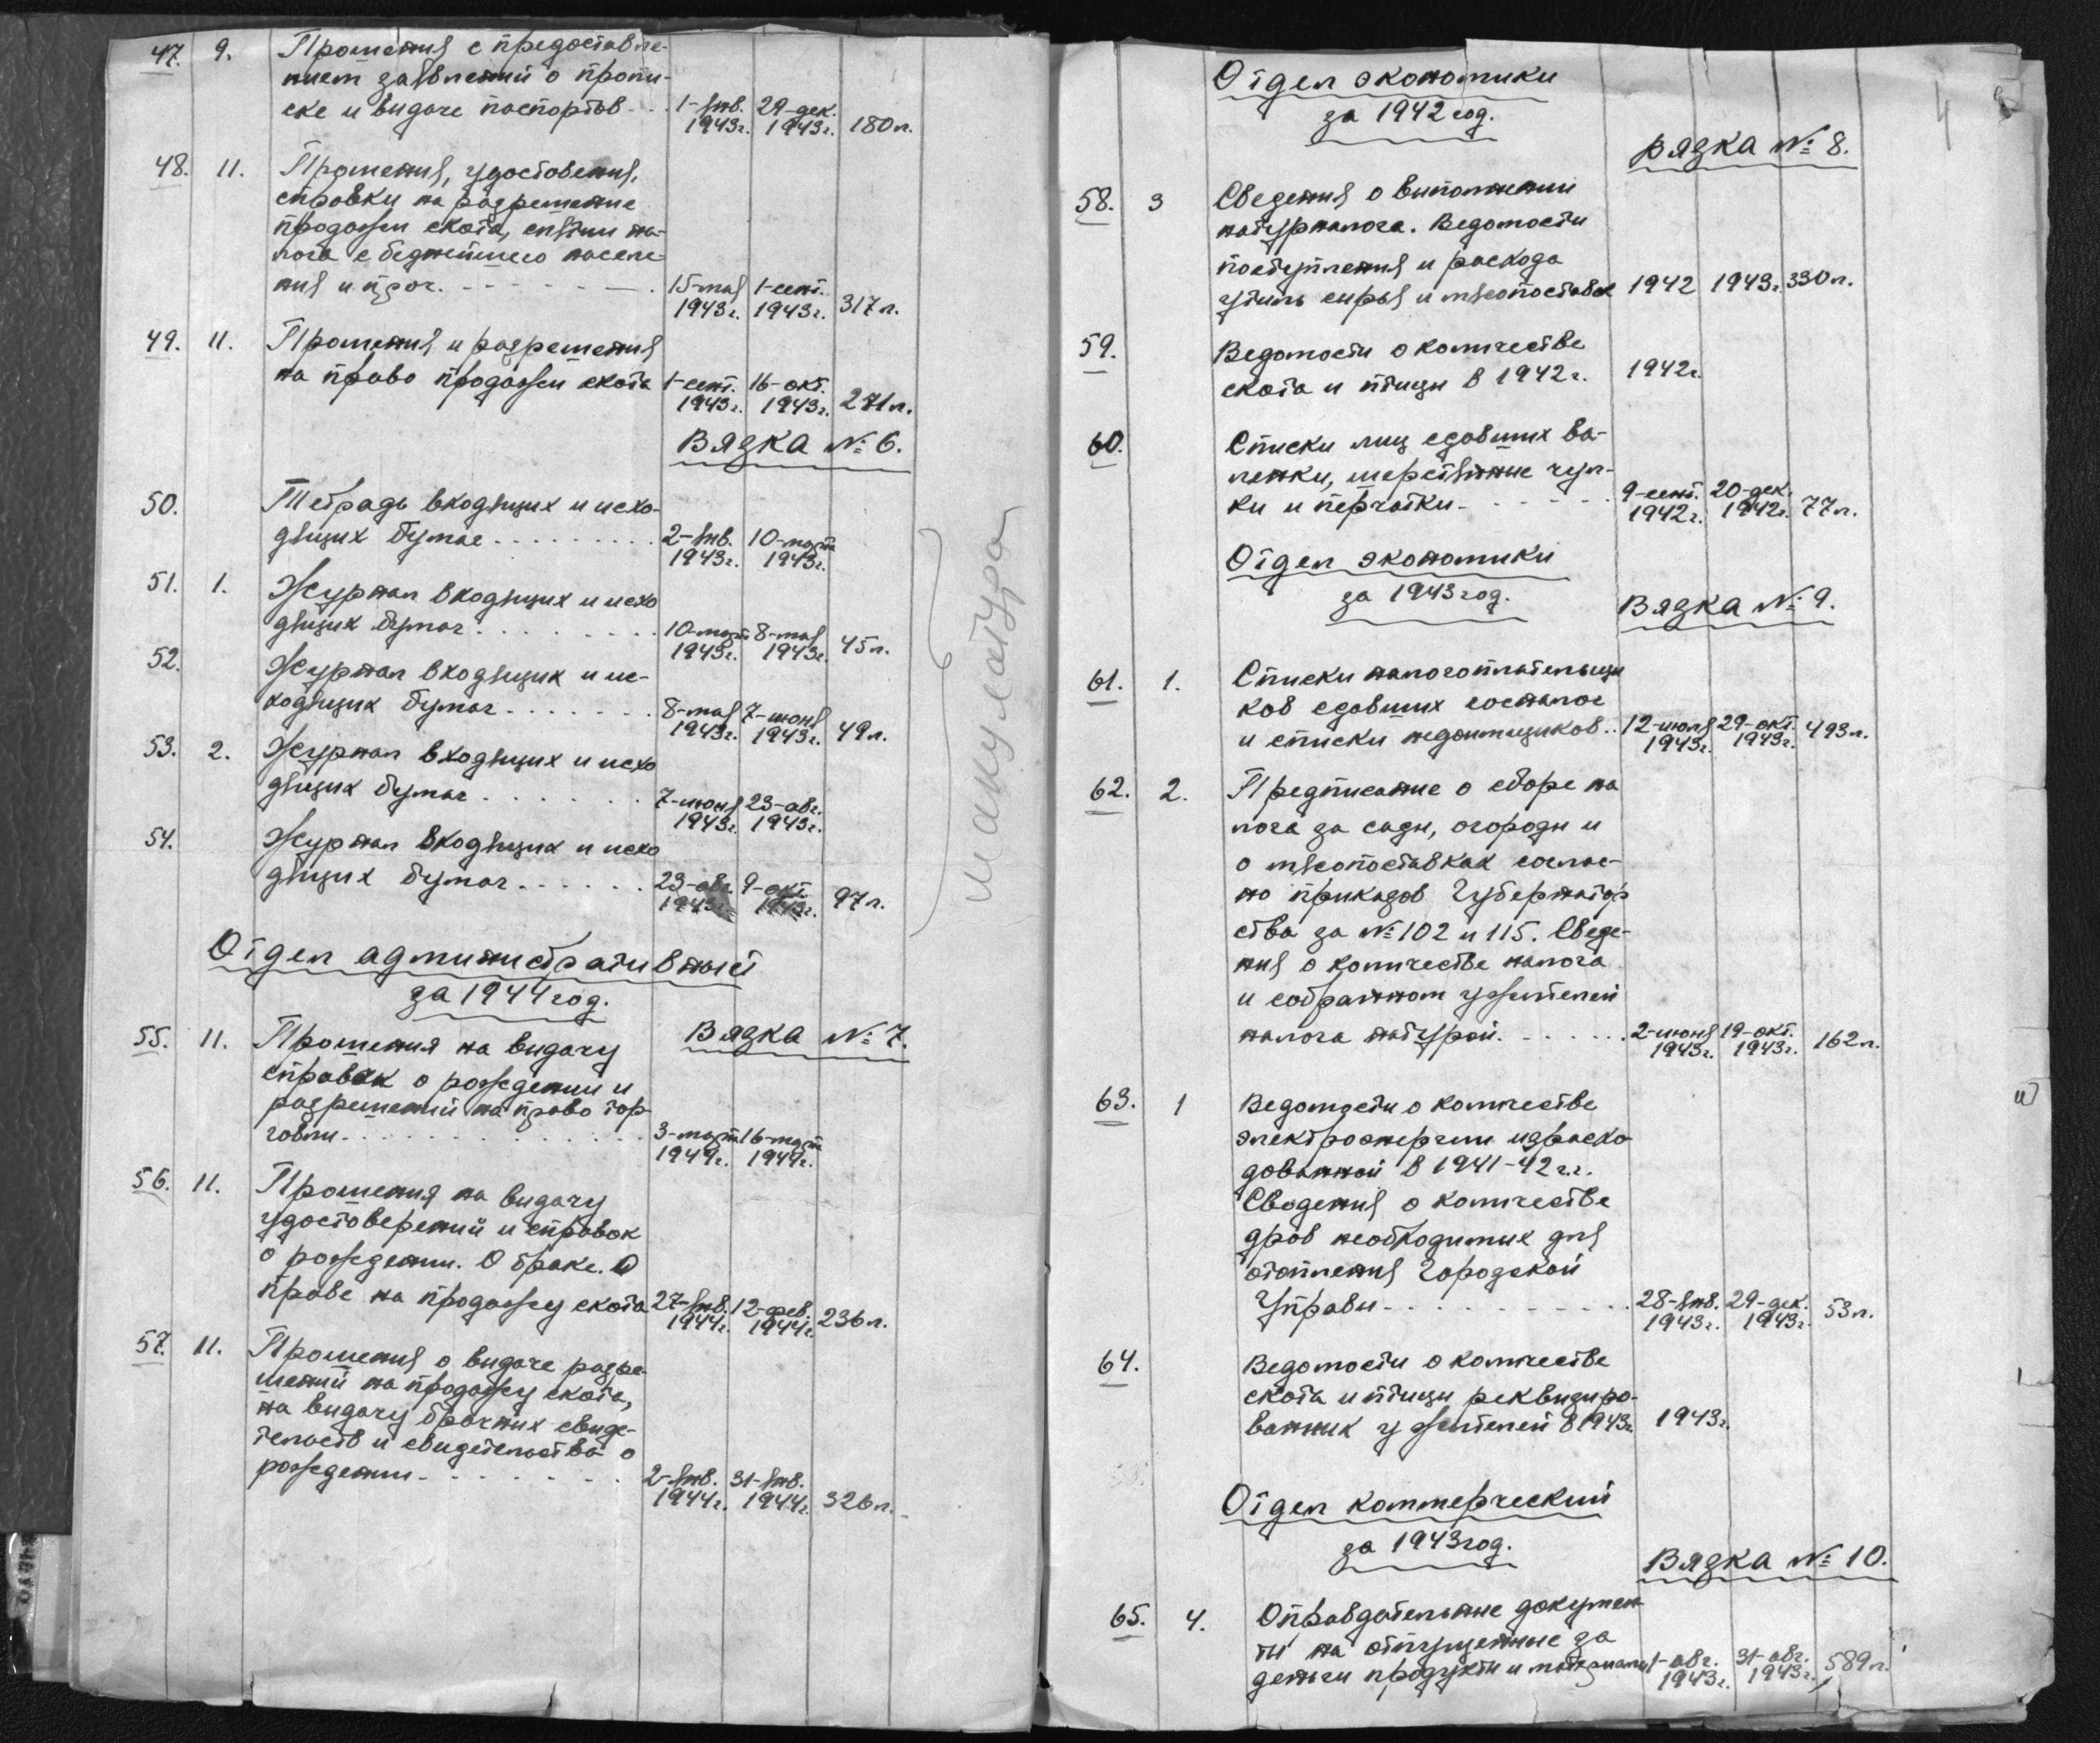 47. 9. Прошения с предоставле-
нием заявлений о пропи-
ске и выдаче паспортов - . . 1-янв. 29-дек.
1943г. 1943г. 180л.
48. 11. Прошения, удостоверения,
справки на разрешение
продажи скота, снятии на-
лога с беднейшего населе-
ния и проч. - - - - - - - . 15-мая 1-сент.
1943г. 1943г. 317л.
49. 11. Прошения и разрешения
на право продажи скота 1-сент. 16-окт.
1943г. 1943г. 271л.
Вязка №6.
50. Тетрадь входящих и исхо-
дящих бумаг . . . . . . . . . 2-янв. 10-марта
1943г. 1943г.
51. 1. Журнал входящих и исхо
дящих бумаг . . . . . . . . . 10-март 8-мая
1943г. 1943г. 45л.
52. Журнал входящих и ис-
ходящих бумаг . . . . . . . 8-мая 7-июня
1943г. 1943г. 49л.
53. 2. Журнал входящих и исхо
дящих бумаг . . . . . . . 7-июня 23-авг.
1943г. 1943г.
54. Журнал входящих и исхо
дящих бумаг . . . . . . 23-авг. 9-окт.
1943г. 1943г. 97л.
макулатура
Отдел административный
за 1944 год.
Вязка №7.
55. 11. Прошения на выдачу
справок о рождении и
разрешений на право тор-
говли . . . . . . . . . . . . . 3-март 16-март
1944г. 1944г.
56. 11. Прошения на выдачу
удостоверений и справок
о рождении. О браке. О
праве на продажу скота 27-янв. 12-фев.
1944г. 1944г. 236л.
57. 11. Прошения о выдаче разре-
шений на продажу скота,
на выдачу брачных свиде-
тельств и свидетельства о
рождении - . . . . . . . 2-янв. 31-янв.
1944г. 1944г. 326л.
4
Отдел экономики
за 1942 год.
Вязка №8.
58. 3 Сведения о выполнении
натурналога. Ведомости
поступления и расхода
утиль сырья и мясопоставок 1942 1943г. 330л.
59. Ведомости о количестве
скота и птицы в 1942г. 1942г.
60. Списки лиц сдавших ва-
ленки, шерстянные чул-
ки и перчатки - . - - - - . 9-сент. 20-дек.
1942г. 1942г. 77л.
Отдел экономики
за 1943 год.
Вязка №9.
61. 1. Списки налогоплательщи
ков сдавших госналог
и списки недоимщиков . . 12-июля 29-окт.
1943г. 1943г. 493л.
62. 2. Предписание о сборе на
лога за сады, огороды и
о мясопоставках соглас-
но приказов Губернатор
ства за №102 и 115. Сведе-
ния о количестве налога
и собранном у жителей
налога натурой . . . . . . . 2-июня 19-окт.
1943г. 1943г. 162л.
63. 1 Ведомости о количестве
электроэнергии израсхо-
дованной в 1941-42 г.г.
Сведения о количестве
дров необходимых для
отопления Городской
Управы - . . . . . . . . . . 28-янв. 29-дек.
1943г. 1943г. 53л.
64. Ведомости о количестве
скота и птицы реквизиро-
ванных у жителей в 1943г. 1943г.
Отдел коммерческий
за 1943 год.
Вязка №10.
65. 4. Оправдательные докумен
ты на отпущенные за
деньги продукты и материалы 1-авг. 31-авг.
1943г. 1943г. 589л.